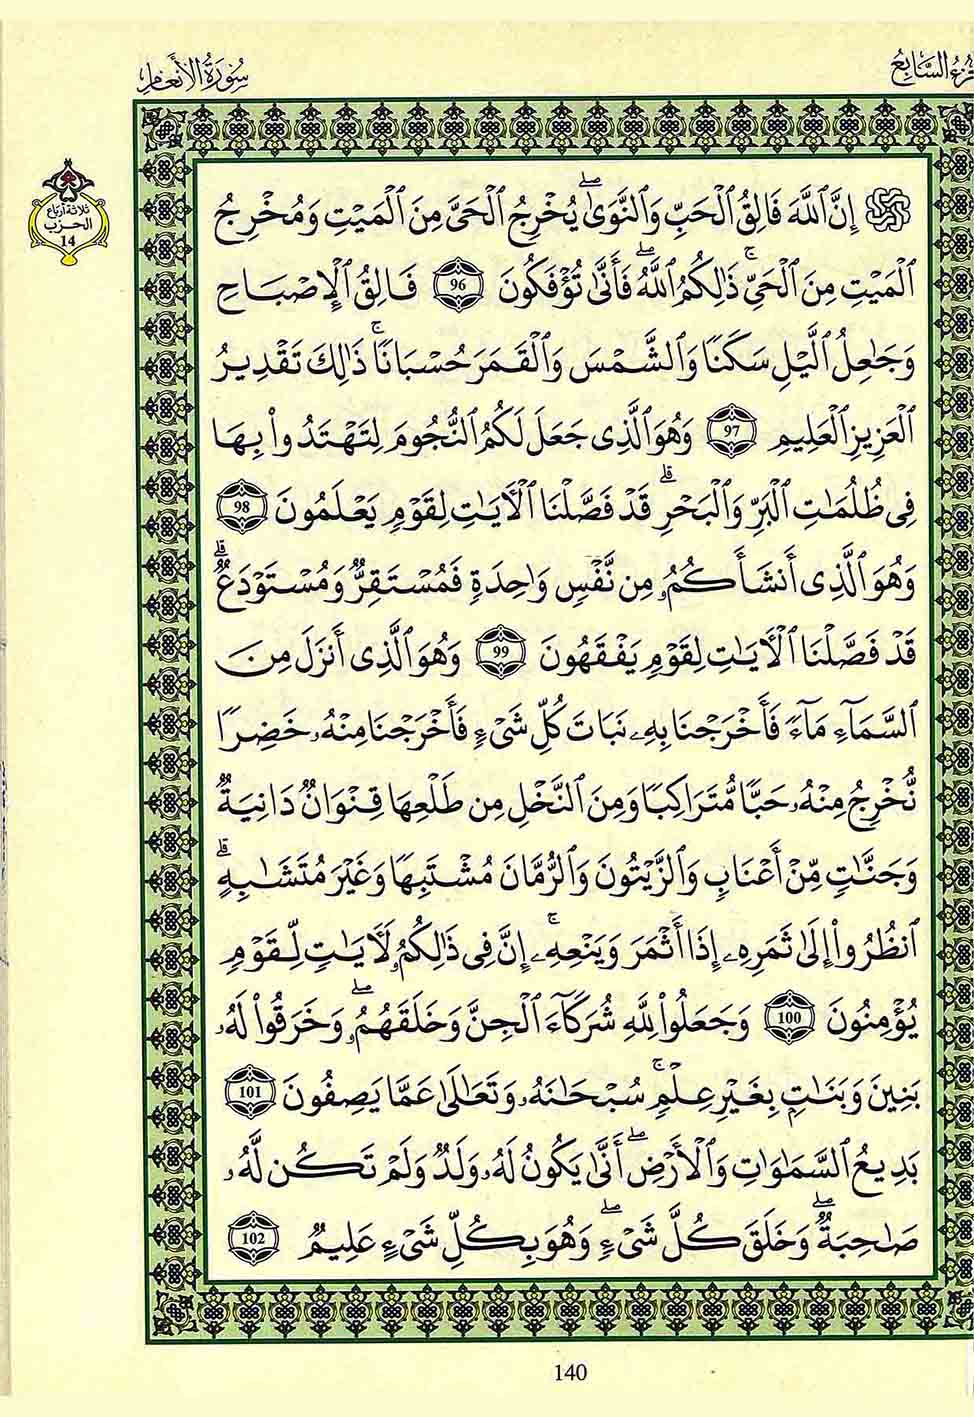 سُورَةُ الأَنعَامِ
السَّابِعُ
ثلاثة أرباع
الحزب
14
إِنَّ ٱللَّهَ فَالِقُ ٱلْحَبِّ وَٱلنَّوَىٰۖ يُخْرِجُ ٱلْحَيَّ مِنَ ٱلْمَيْتِ وَمُخْرِجُ
ٱلْمَيْتِ مِنَ ٱلْحَيِّۚ ذَٰلِكُمُ ٱللَّهُۖ فَأَنَّىٰ تُؤْفَكُونَ 96 فَالِقُ ٱلْإِصْبَاحِ
وَجَٰعِلُ ٱلَّيْلِ سَكَنًا وَٱلشَّمْسَ وَٱلْقَمَرَ حُسْبَانًاۚ ذَٰلِكَ تَقْدِيرُ
ٱلْعَزِيزِ ٱلْعَلِيمِ 97 وَهُوَ ٱلَّذِي جَعَلَ لَكُمُ ٱلنُّجُومَ لِتَهْتَدُوا۟ بِهَا
فِي ظُلُمَٰتِ ٱلْبَرِّ وَٱلْبَحْرِۗ قَدْ فَصَّلْنَا ٱلْأٓيَٰتِ لِقَوْمٍ يَعْلَمُونَ 98
وَهُوَ ٱلَّذِي أَنشَأَكُمُۥ مِن نَّفْسٍ وَٰحِدَةٍ فَمُسْتَقِرٌّ وَمُسْتَوْدَعٌۗ
قَدْ فَصَّلْنَا ٱلْأٓيَٰتِ لِقَوْمٍ يَفْقَهُونَ 99 وَهُوَ ٱلَّذِي أَنزَلَ مِنَ
ٱلسَّمَآءِ مَآءً فَأَخْرَجْنَا بِهِۦ نَبَاتَ كُلِّ شَيْءٍ فَأَخْرَجْنَا مِنْهُۥ خَضِرًا
نُّخْرِجُ مِنْهُۥ حَبًّا مُّتَرَاكِبًا وَمِنَ ٱلنَّخْلِ مِن طَلْعِهَا قِنْوَانٌ دَانِيَةٌ
وَجَنَّٰتٍ مِّنْ أَعْنَابٍ وَٱلزَّيْتُونَ وَٱلرُّمَّانَ مُشْتَبِهًا وَغَيْرَ مُتَشَٰبِهٍۗ
ٱنظُرُوا۟ إِلَىٰ ثَمَرِهِۦ إِذَا أَثْمَرَ وَيَنْعِهِۦۚ إِنَّ فِي ذَٰلِكُمُۥ لَأٓيَٰتٍ لِّقَوْمٍ
يُؤْمِنُونَ 100 وَجَعَلُوا۟ لِلَّهِ شُرَكَآءَ ٱلْجِنَّ وَخَلَقَهُمُۥۖ وَخَرَقُوا۟ لَهُۥ
بَنِينَ وَبَنَٰتٍ بِغَيْرِ عِلْمٍۚ سُبْحَٰنَهُۥ وَتَعَٰلَىٰ عَمَّا يَصِفُونَ 101
بَدِيعُ ٱلسَّمَٰوَٰتِ وَٱلْأَرْضِۖ أَنَّىٰ يَكُونُ لَهُۥ وَلَدٌ وَلَمْ تَكُن لَّهُۥ
صَٰحِبَةٌۖ وَخَلَقَ كُلَّ شَيْءٍۖ وَهُوَ بِكُلِّ شَيْءٍ عَلِيمٌ 102
140